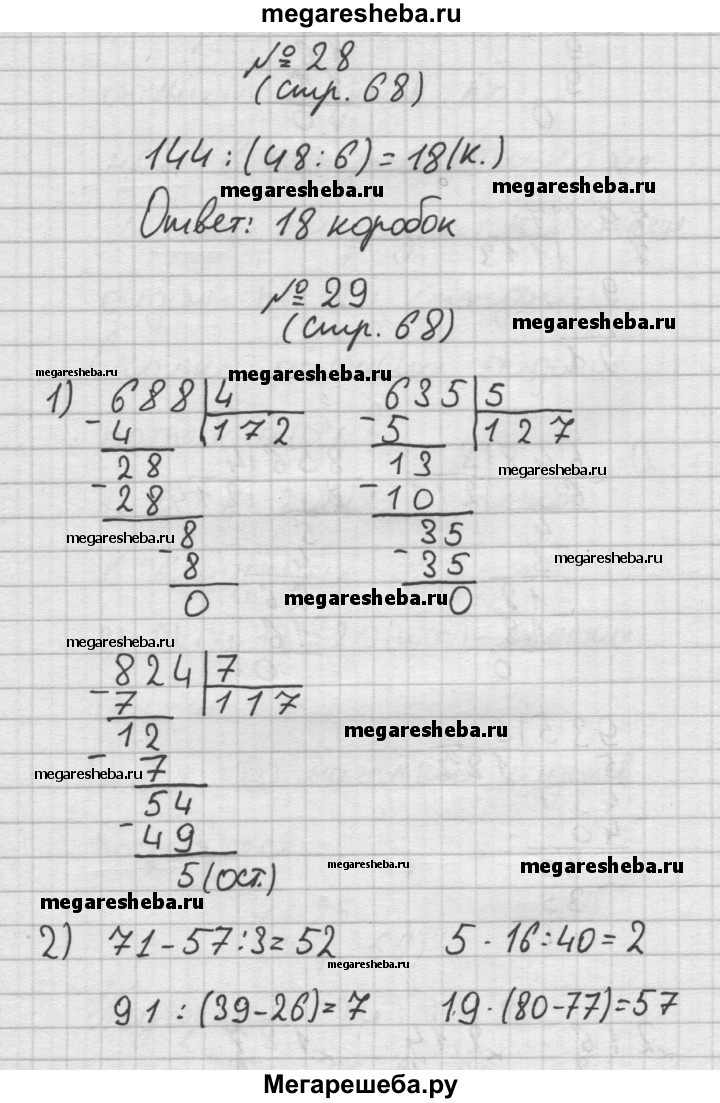 megaresheba.ru
№ 28
(стр. 68)
144 : (48 : 6) = 18 (к.)
megaresheba.ru
megaresheba.ru
Ответ: 18 коробок
№ 29
(стр. 68)
megaresheba.ru
megaresheba.ru
megaresheba.ru
1) 688 | 4
- 4 | 172
28
- 28
8
- 8
0
635 | 5
- 5 | 127
13
- 10
35
- 35
0
megaresheba.ru
megaresheba.ru
megaresheba.ru
megaresheba.ru
megaresheba.ru
824 | 7
- 7 | 117
12
- 7
54
- 49
5 (ост.)
megaresheba.ru
megaresheba.ru
megaresheba.ru
megaresheba.ru
megaresheba.ru
2) 71 - 57 : 3 = 52 5 · 16 : 40 = 2
megaresheba.ru
91 : (39 - 26) = 7 19 · (80 - 77) = 57
Мегарешеба.ру